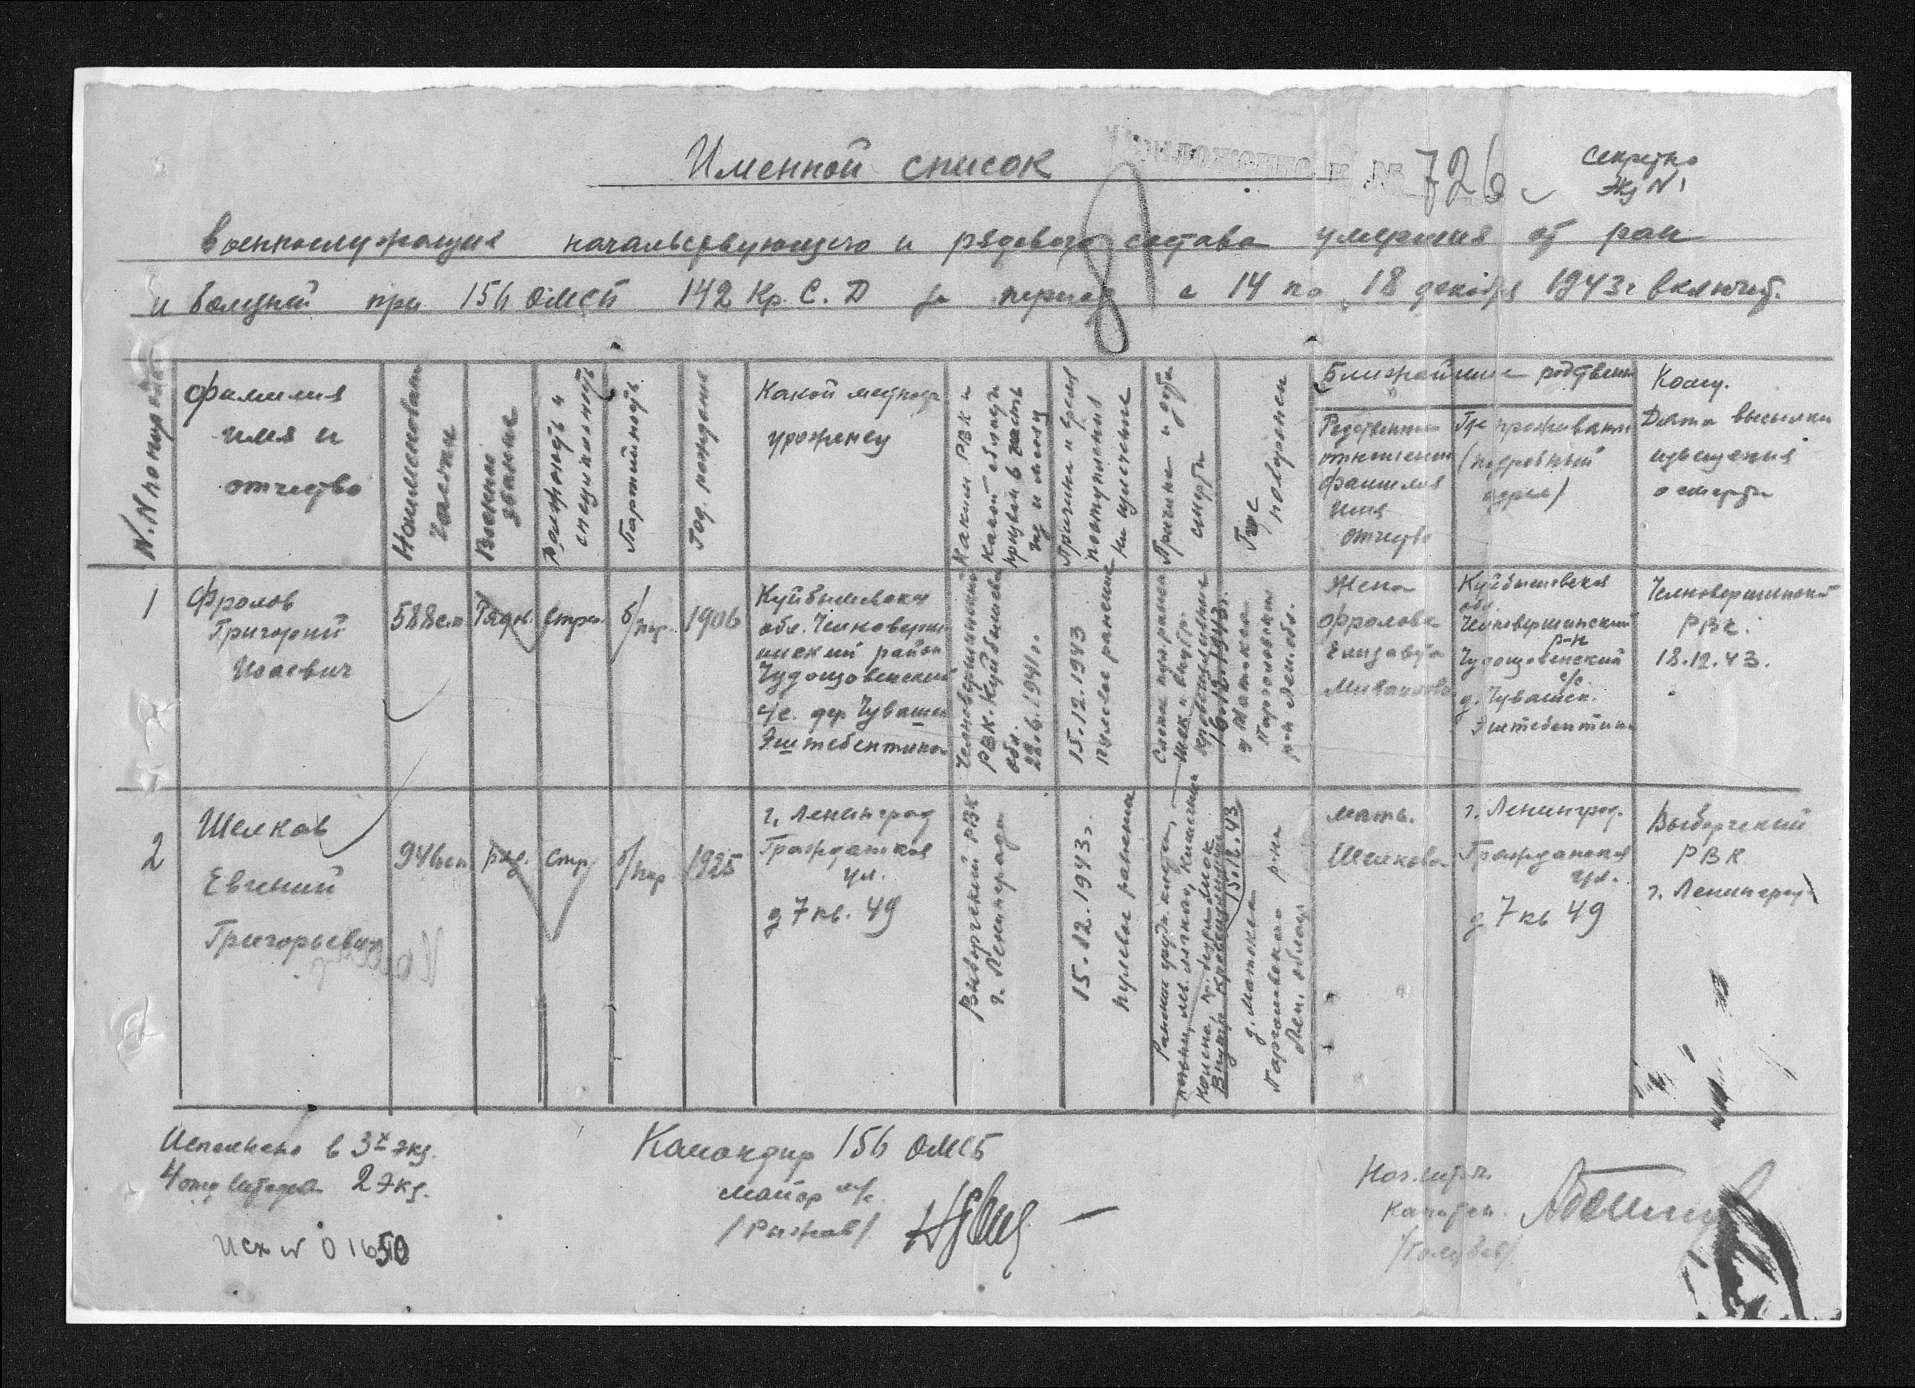 Именной список
726
Секретно
Экз №1
военнослужащих начальствующего и рядового состава умерших от ран
и болезней при 156 ОМСБ 142 Кр. С. Д за период с 14 по 18 декабря 1943 г включит.
N.N по порядку
Фамилия
имя и
отчество
Наименован
части
Военное
звание
Должность и
специальность
Партийность
Год рождения
Какой местности
уроженец
Каким РВК и
какой области
призван в часть
Причина и время
поступления
на излечение
Причина и дата
смерти
Где
похоронен
Ближайшие родствен
Родственные
отношения
фамилия
имя
отчество
Где проживают
(подробный
адрес)
Кому.
Дата высылки
извещения
о смерти
1
Фролов
Григорий
Исаевич
588 сп
Рядов.
стрел.
б/пар.
1906
Куйбышевская
обл. Челноверши
нский район
Чудощовенский
с/с. дер. Чуваши
Эштебентино
Челновершинский
РВК. Куйбышев
обл.
22.6.1941 г.
15.12.1943
пулевое ранение
16.12.1943 г.
Жена
Фролова
Елизавета
Куйбышевская
обл.
Челновершинский
р-н
Чудощовенский
с/с.
д. Чувашск.
Эштебентино
Челновершинский
РВК.
18.12.43.
2
Шелков
Евгений
Григорьевич
946 сп
ряд.
стр.
б/пар
1925
г. Ленинград
Гражданская
ул.
д 7 кв. 49
Выборгский РВК
г. Ленинграда
15.12.1943 г.
пулевое ранение
15.12.43
д. Матокса
Парголовского р-на
Лен. области
мать.
Шелкова
г. Ленинград.
Гражданская
ул.
д 7 кв 49
Выборгский
РВК
г. Ленинград
Исполнено в 3х экз.
2 экз.
Исх № 01650
Командир 156 ОМСБ
майор м/с
/Рыжов/
Нач. штаба
Капитан